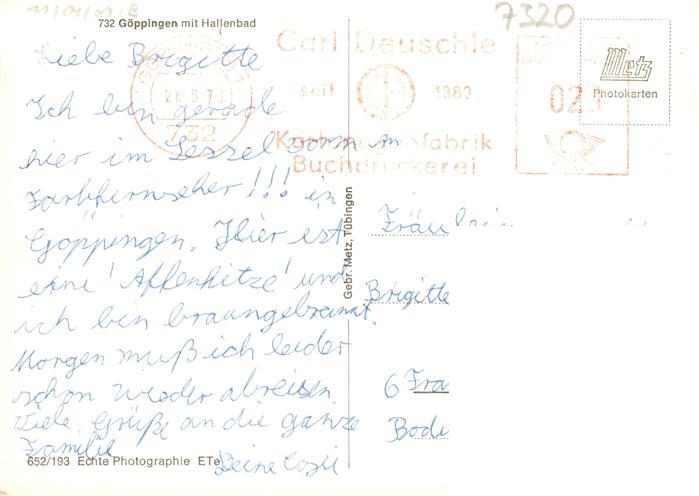 11/01/01/B
7320
732 Göppingen mit Hallenbad
Carl Deuschle
seit 1380
Buchdruckerei
732
Metz
Photokarten
Liebe Brigitte
Ich bin gerade
hier im Sessel vorm
Farbfernseher!!! in
Göppingen. Hier ist
eine 'Affenhitze' und
ich bin braungebrannt.
Morgen muß ich leider
schon wieder abreisen.
Viele Grüße an die ganze
Familie
Deine
Gebr. Metz, Tübingen
Fräulein
Brigitte
6 Fra
Bod
652/193 Echte Photographie ETe